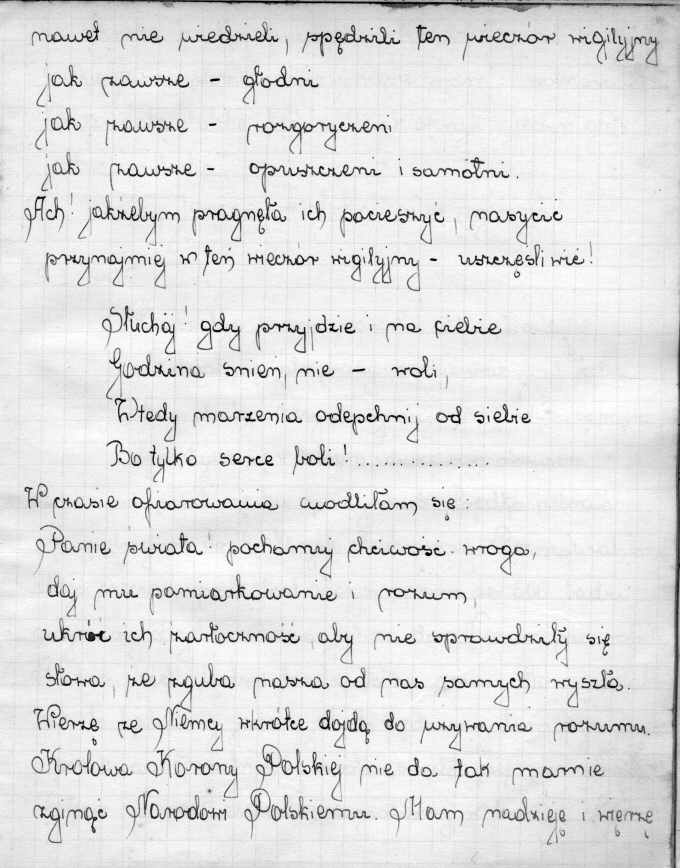 nawet nie wiedzieli, spędzili ten wieczór wigilyjny
jak zawsze - głodni
jak zawsze - rozgoryczeni
jak zawsze - opuszczeni i samotni.
Ach! jakżebym pragnęła ich pocieszyć, nasycić
przynajmiej w ten wieczór wigilyjny - uszczęśliwić!
Słuchaj! gdy przyjdzie i na ciebie
Godzina śnień, nie - woli,
Wtedy marzenia odepchnij od siebie
Bo tylko serce boli!................
W czasie ofiarowania modliłam się
Panie świata! pochamuj chciwość wroga,
daj mu pamiarkowanie i rozum,
ukróć ich żarłoczność, aby nie sprawdziły się
słowa, że zguba nasza od nas samych wyszła.
Wierzę że Niemcy wkrótce dojdą do używania rozumu.
Królowa Korony Polskiej nie da tak marnie
zginąć Narodowi Polskiemu. Mam nadzieję i wierzę